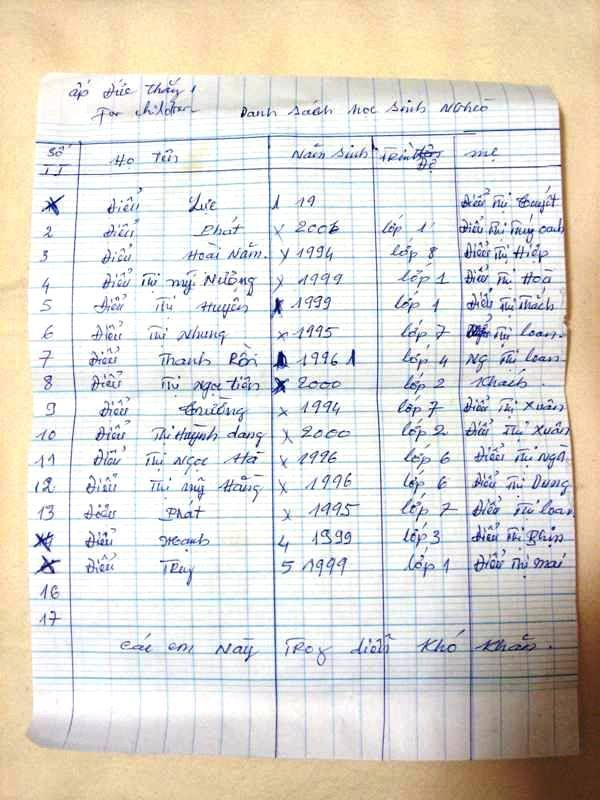 ấp Đức Thắng 1
For children Danh Sách học Sinh Nghèo
Số TT Họ Tên Năm Sinh Trình Độ mẹ
Điểu Lực 1 19 Điểu Thị Tuyết
2 Điểu Phát x 2006 lớp 1 Điểu Thị Thúy oanh
3 Điểu Hoài Nam x 1994 lớp 8 Điểu Thị Hiệp
4 Điểu Thị mỹ Nương x 1999 lớp 1 Điểu Thị Hoà
5 Điểu Thị Huyên 1999 lớp 1 Điểu Thị Thách
6 Điểu Thị Nhung x 1995 lớp 7 Thị loan
7 Điểu Thanh 1996 lớp 4 Ng Thị loan
8 Điểu Thị Ngọc tiên x 2000 lớp 2 Khách
9 Điểu Trường x 1994 lớp 7 Điểu Thị Xuân
10 Điểu Thị Huỳnh dang x 2000 lớp 2 Điểu Thị Xuân
11 Điểu Thị Ngọc Hà x 1996 lớp 6 Điểu Thị Ngà
12 Điểu Thị mỹ Hằng x 1996 lớp 6 Điểu Thị Dung
13 Điểu Phát x 1995 lớp 7 Điểu Thị loan
Điểu Hoạnh 4 1999 lớp 3 Điểu Thị
Điểu Truy 5 1999 lớp 1 Điểu Thị mai
16
17
các em Này Trog diễn Khó Khăn.